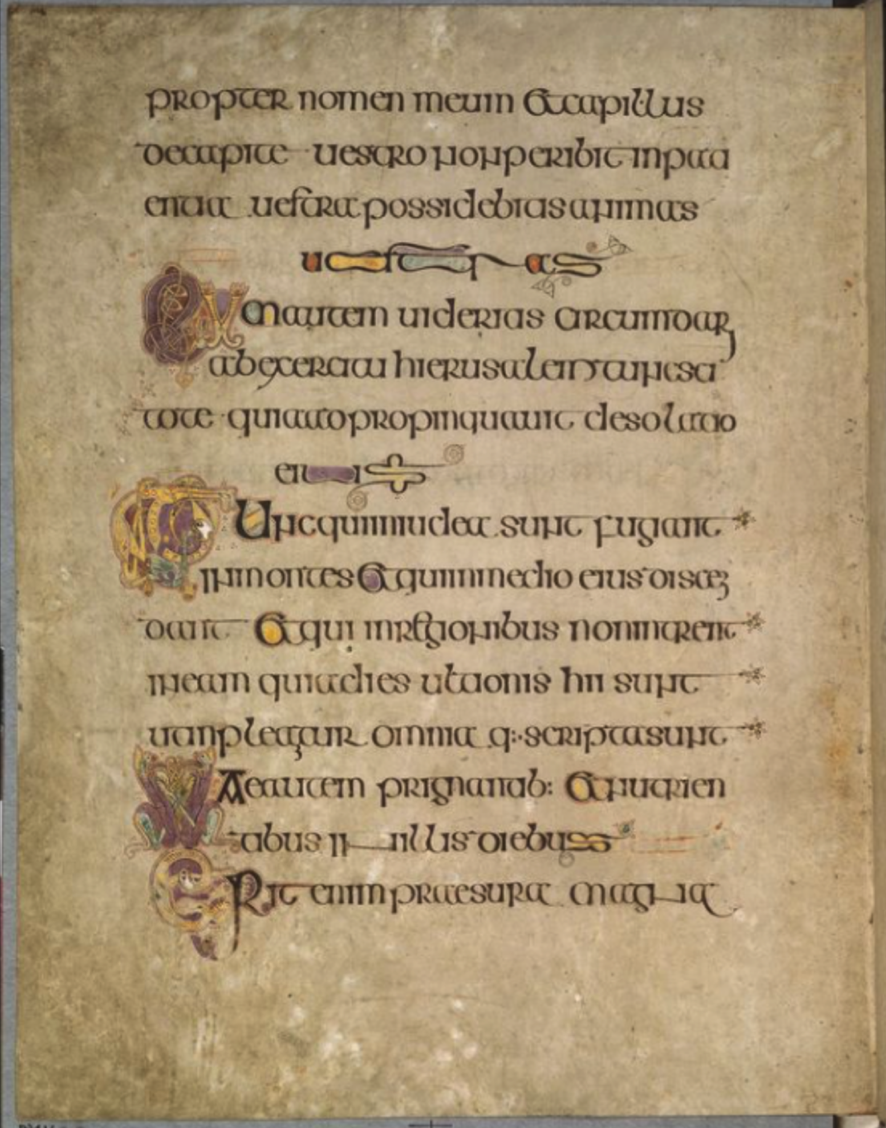 propter nomen meum et capillus
de capite uestro non peribit in pati
entia uestra possidebitis animas
uestras
Cum autem uideritis circumdari
ab exercitu hierusalem tunc sci
tote quia adpropinquauit desolatio
eius
Tunc qui in iudea sunt fugiant
in montes et qui in medio eius disce
dant et qui in regionibus non intrent
in eam quia dies ultionis hii sunt
ut impleantur omnia q: scripta sunt
Vae autem prignantib: et nutrien
tibus in illis diebus
Erit enim praesura magna